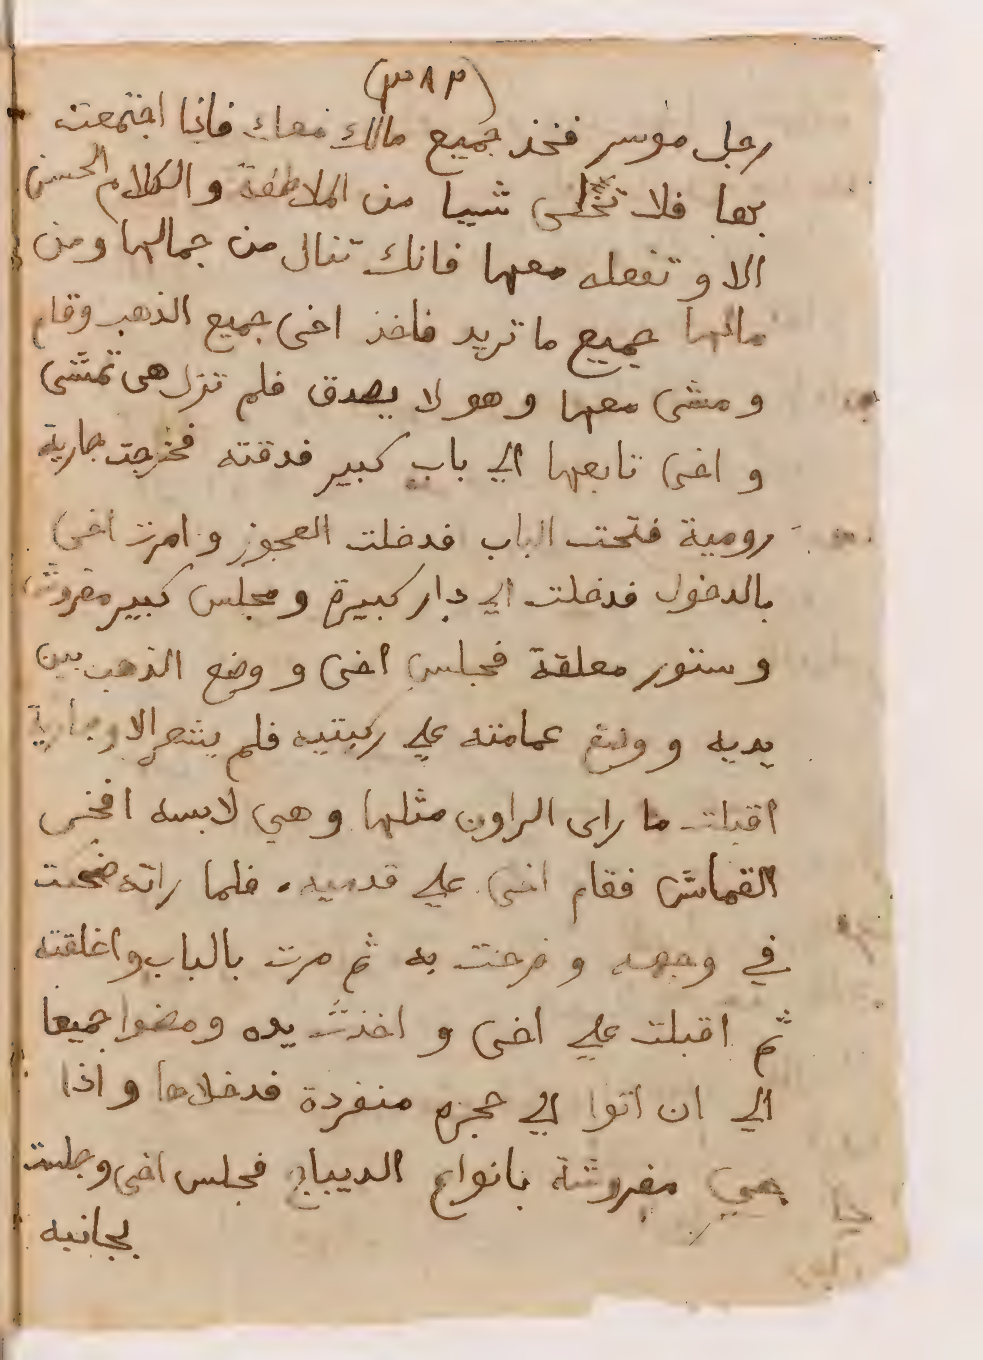 (٣٨٣)
رجل موسر فخذ جميع مالك معك فاذا اجتمعت
بها فلا تخلى شيا من الملاطفة والكلام الحسن
الا و تفعله معها فانك تنال من جمالها ومن
مالها جميع ما تريد فاخذ اخى جميع الذهب وقام
و مشى معها و هو لا يصدق فلم تزل هى تمشى
و اخى تابعها الي باب كبير فدقته فخرجت جارية
رومية فتحت الباب فدخلت العجوز و امرت اخى
بالدخول فدخلت الي دار كبيرة و مجلس كبير مفروش
و ستور معلقة فجلس اخى و وضع الذهب بين
يديه و وضع عمامته علي ركبتيه فلم يشعر الا وجارية
اقبلت ما راى الراون مثلها و هي لابسه افخر
القماش فقام اخى علي قدميه . فلما راته ضحكت
في وجهه و فرحت به ثم مرت بالباب واغلقته
ثم اقبلت علي اخى و اخذت يده ومضوا جميعا
الي ان اتوا الي حجره منفردة فدخلاها و اذا
هي مفروشة بانواع الديباج فجلس اخى وجلست
بجانبه